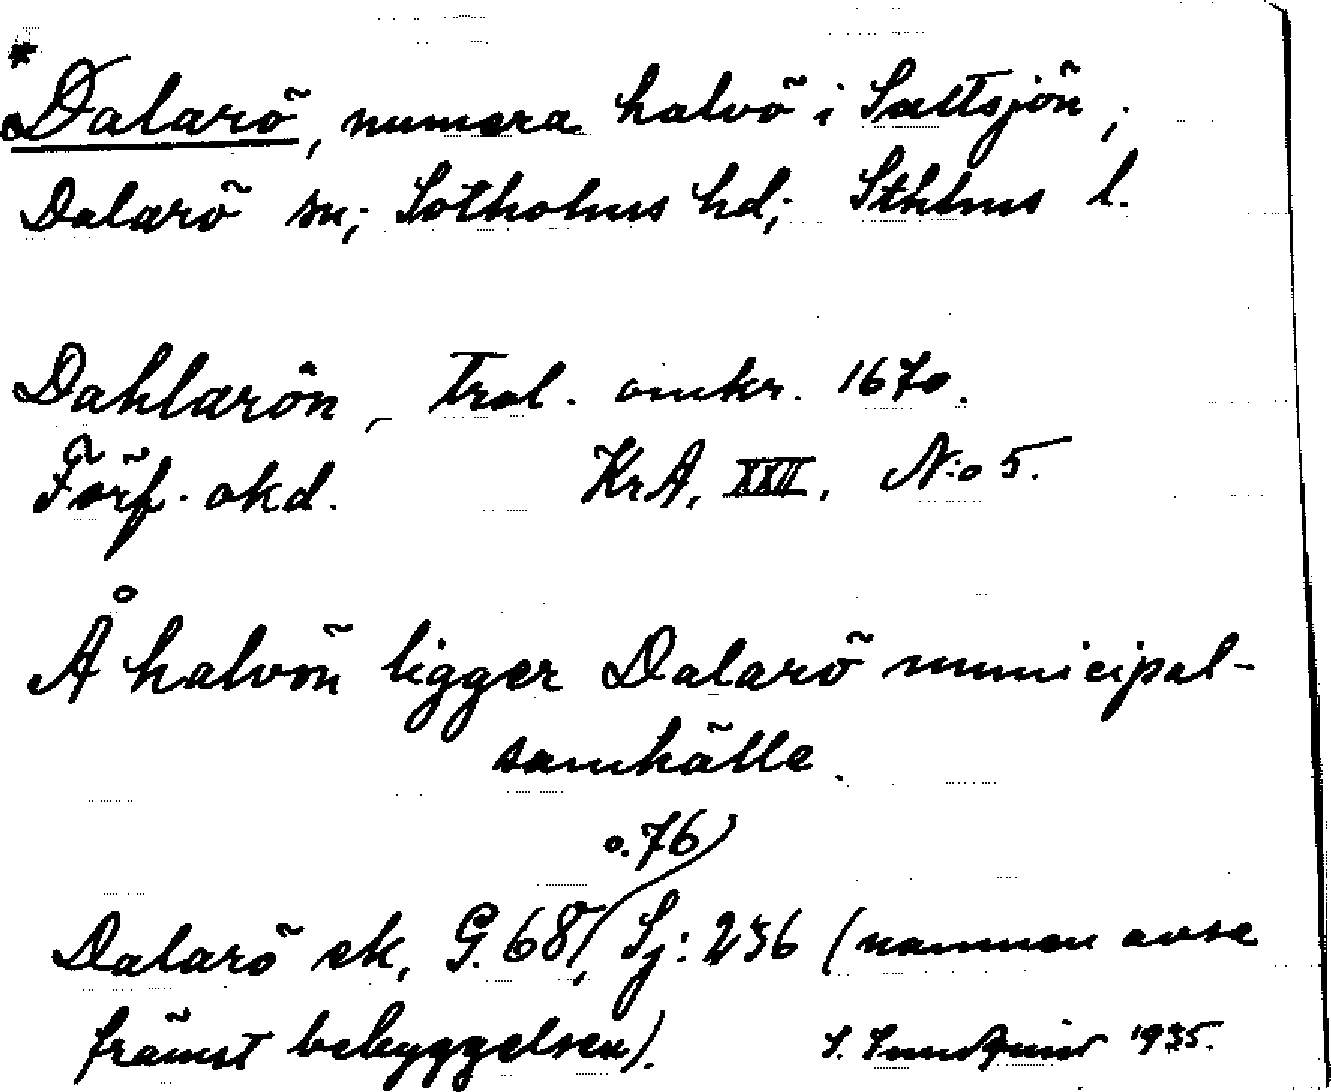 * Dalarö, numera halvö i Saltsjön;
Dalarö sn; Sotholms hd; Sthlms l.
Dahlarön, trol. omkr. 1670.
Förf. okd. KrA, XXII, N:o 5.
Å halvön ligger Dalarö municipal-
samhälle.
o. 76
Dalarö ek, G. 68, Sj: 236 (namnen avse
främst bebyggelsen). S. 1935.